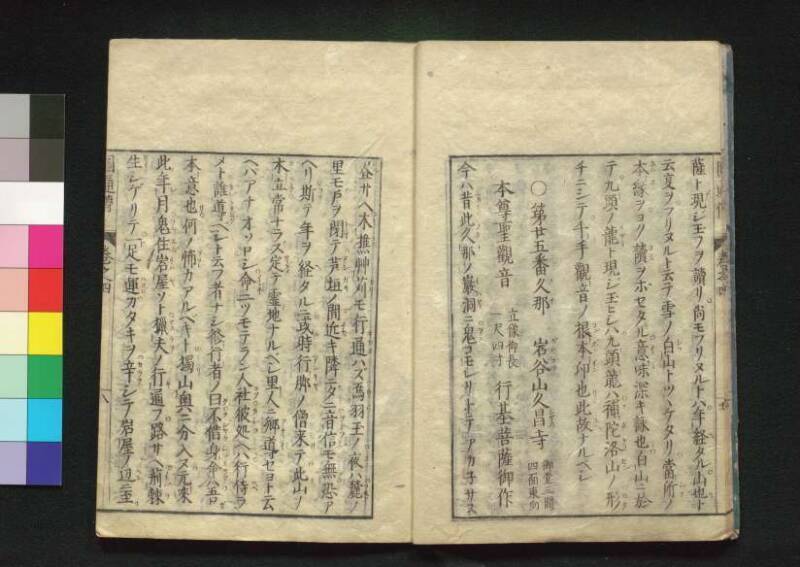 薩ト現シ玉フヲ讃リ尚モフリヌルトハ年経タル山也ト
云夏ヲフリヌルト云テ雪ノ白山トツヽケタリ當所ノ
本縁ヲヨク讃ヲホセタル意味深キ詠也白山ニ於
テ九頭ノ龍ト現シ玉ヒシハ九頭龍ハ補陀洛山ノ形
チニシテ千手觀音ノ根本印也此故ナルベシ
〇第廿五番久那 岩谷山久昌寺 御堂三間四面東向
本尊聖觀音 立像御長一尺四寸 行基菩薩御作
今ハ昔此久那ノ巖洞ニ鬼コモレリトテアカ子サス
サヘ木樵艸苅モ行通ハズ烏羽玉ノ夜ハ麓ノ
里モ戸ヲ閉テ芦垣ノ間近キ隣タニ音信モ無恐ア
ヘリ斯テ年ヲ経タルニ或時行脚ノ僧来テ此山ノ
木立常ナラス定テ霊地ナルベシ里人ニ郷導セヨト云
ヘバアナオソロシ命二ツモテラン人社彼処ヘハ行侍ラ
メト誰導ベシト云フ者ナシ修行者ノ曰不惜身命ハ吾
本意也何ノ怖カアルベキト揚山奥ニ分入ヌ元来
此年月鬼住岩屋ソト猟夫ノ行通フ路サヘ荊棘
生シゲリテ一足モ運ガタキヲ辛シテ岩屋ノ辺ニ至
圓通傳 巻之四 八